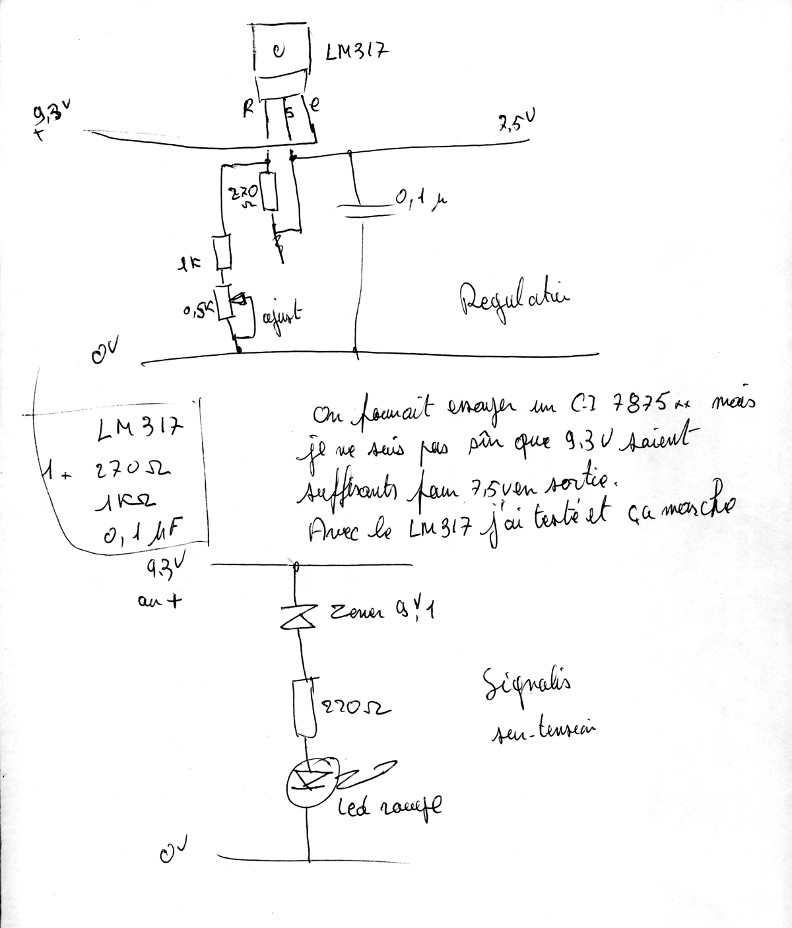 LM317
R S e
9,3V
+
7,5V
270
Ω
0,1 µ
1K
0,5K
ajust
0V
LM317
1 270Ω
1KΩ
0,1 µF
On pourrait essayer un C.I 7875 xx mais
je ne suis pas sûr que 9,3V soient
suffisants pour 7,5V en sortie.
Avec le LM317 j'ai testé et ça marche
9.3V
au +
Zener 9V1
220Ω
Led rouge
0V